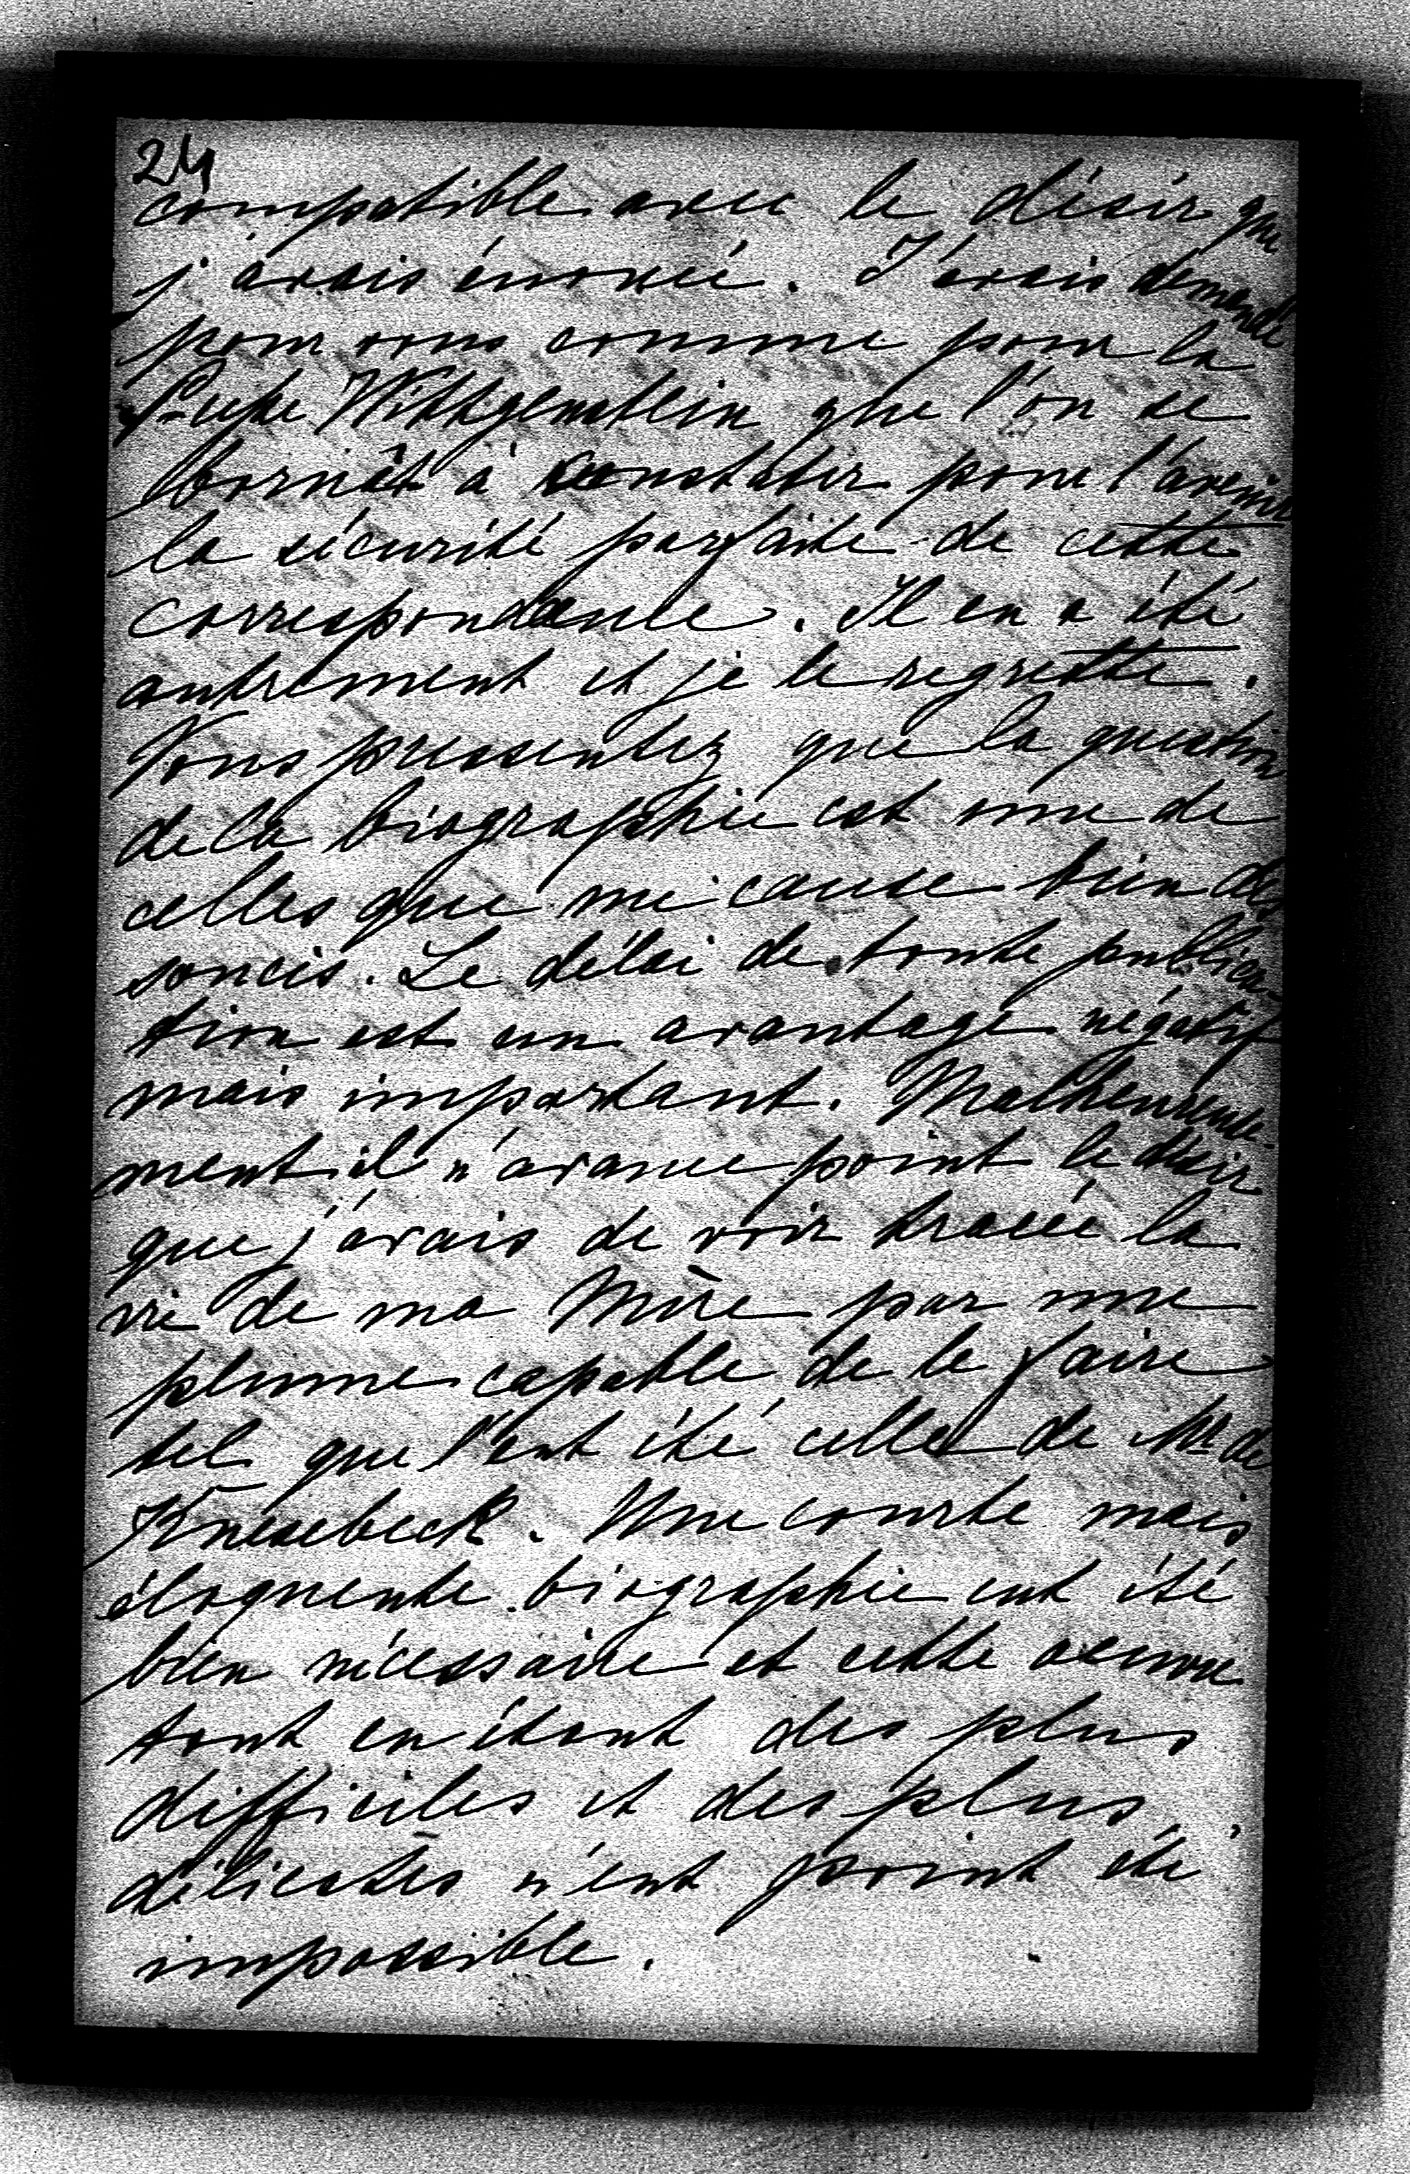 24
compatible avec le désir que
j'avais énoncé. J'avais demandé
pour vous comme pour la
Pcesse Wittgenstein que l'on se
bornât à constater pour l'avenir
la sécurité parfaite de cette
correspondance. Il en a été
autrement et je le regrette.
Vous pressentez que la question
de la biographie est une de
celles que me cause bien des
soucis. Le délai de toute publica-
tion est un avantage négatif
mais important. Malheureuse-
ment il n'avance point le désir
que j'avais de voir tracée la
vie de ma Mère par une
plume capable de le faire
tel que l'eut été celle de Mr de
Knesebeck. Une courte mais
éloquente biographie eut été
bien nécessaire et cette oeuvre
tout en étant des plus
difficiles et des plus
délicates n'eut point été
impossible.